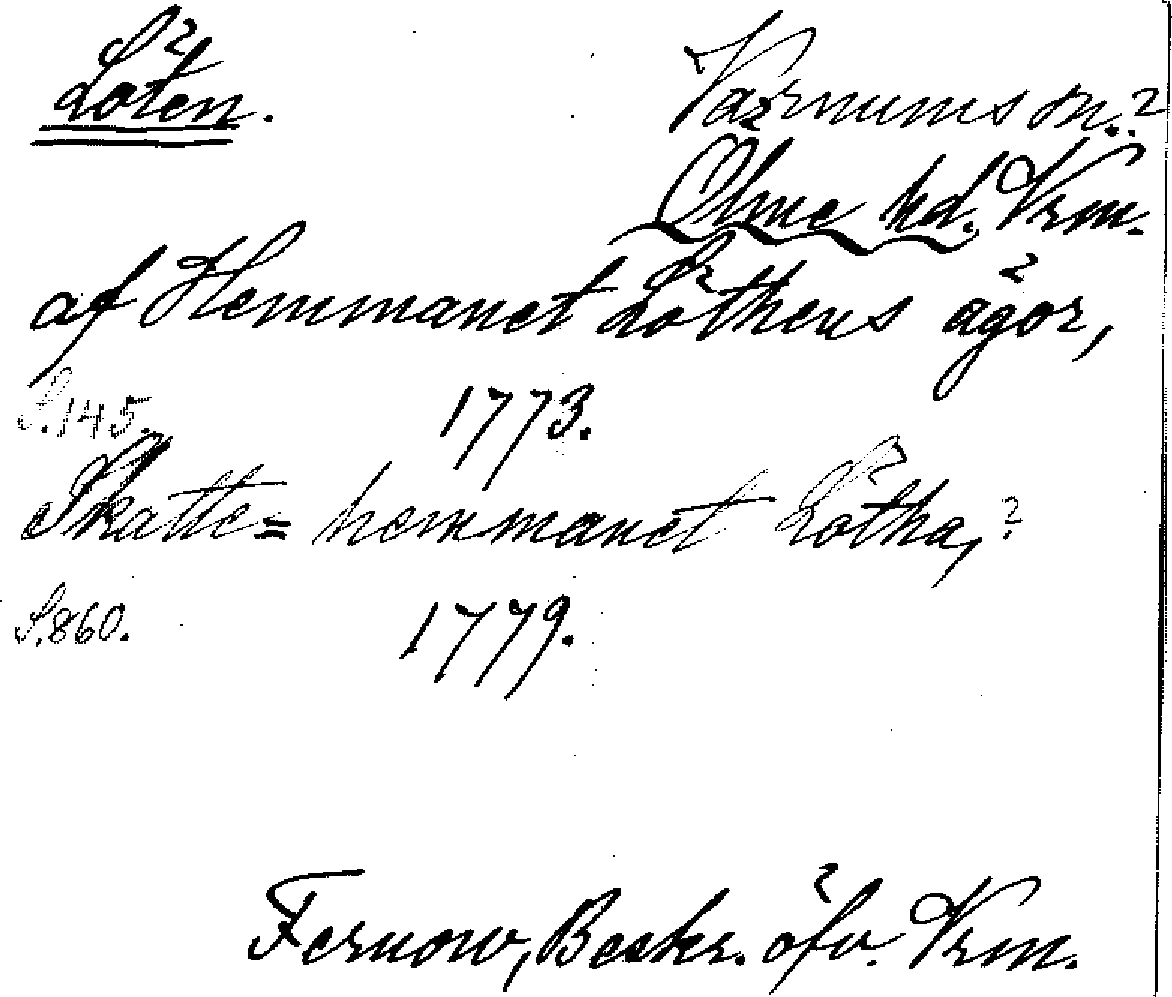 Löten.
Varnums sn.?
Ölme hd. Vrm.
af Hemmanet Löthens ägor,
S.145. 1773.
Skatte= hemmanet Lötha,?
S.860. 1779.
Fernow, Beskr. öfv. Vrm.